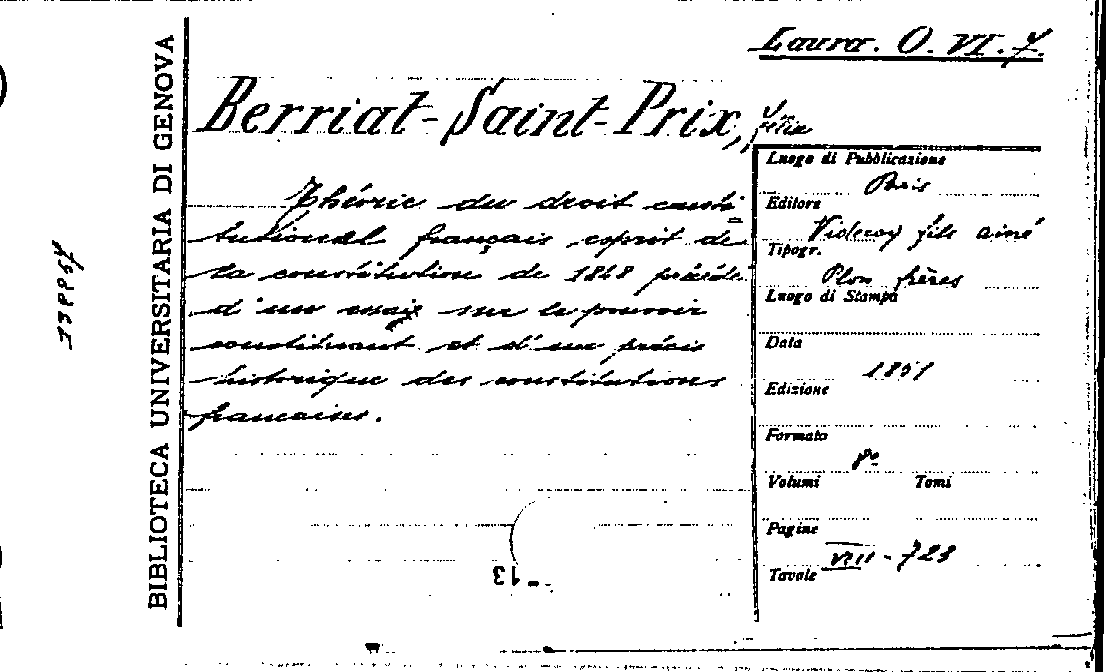 Laura. O. VI. 7.
Berriat-Saint-Prix, félix
Théorie du droit consti=
tutionnel français esprit de
la constitution de 1848 précédé
d'un essai sur le pouvoir
constituant et d'un précis
historique des constitutions
francaises.
Luogo di Pubblicazione
Paris
Editore
Videcoq fils ainé
Tipogr.
Plon frères
Luogo di Stampa
Data
1851
Edizione
Formato
8º
Volumi Tomi
Pagine
VIII - 723
Tavole
BIBLIOTECA UNIVERSITARIA DI GENOVA
13